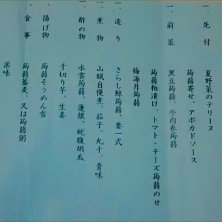 一、先付
夏野菜のテリーヌ
蒟蒻寄せ、アボカドソース
一、前菜
黒豆蒟蒻、牛肉巻蒟蒻
蒟蒻粕漬け、トマト・チーズ蒟蒻のせ
梅海月蒟蒻
一、造り
さらし鯨蒟蒻、妻一式
一、煮物
山賊自慢煮、茄子、丸十、書味
一、酢の物
水雲蒟蒻、蓮根、蛇腹胡瓜
千切り芋、生姜
揚げ物
蒟蒻そうめん雲
一、食事
蒟蒻蕎麦、又は蒟蒻粥
薬味